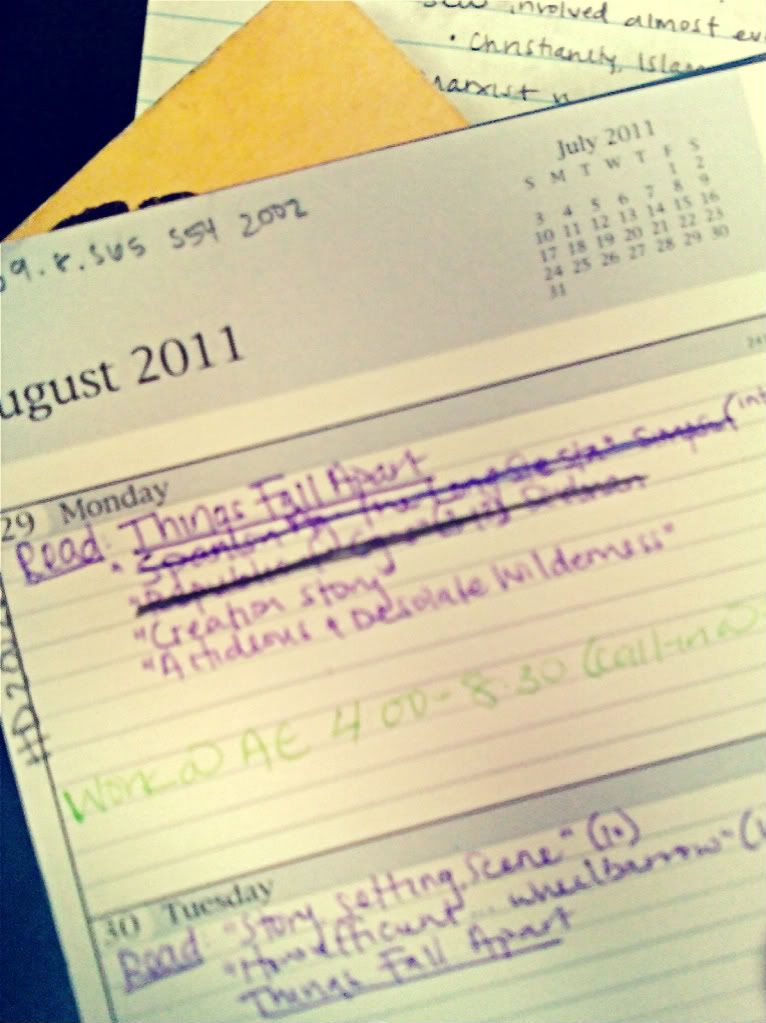 involved almost
• Christianity, Islam
Marxist
9.8.S65 S54 2002
July 2011
S M T W T F S
1 2
3 4 5 6 7 8 9
10 11 12 13 14 15 16
17 18 19 20 21 22 23
24 25 26 27 28 29 30
31
ugust 2011
29 Monday
Read: Things Fall Apart
"Creation story"
"A Hideous & Desolate Wilderness"
Work @ AE 4:00-8:30 (call-in @
30 Tuesday
Read: "Story setting, Scene" (10)
wheelbarrow" (
Things Fall Apart